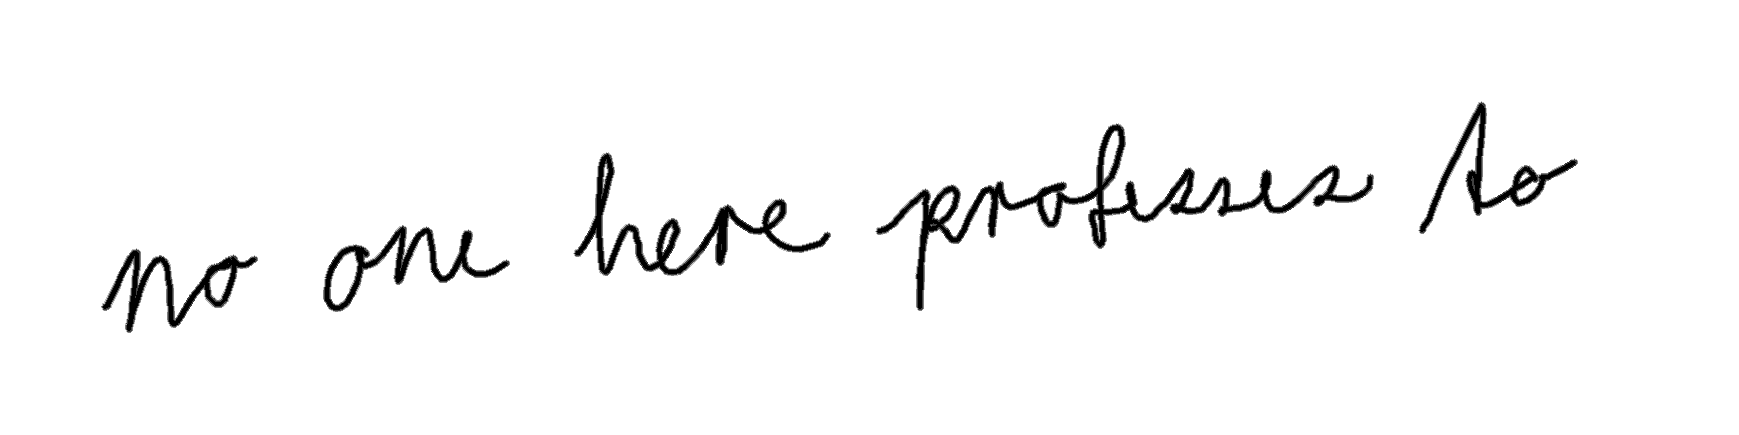 no one here professes to